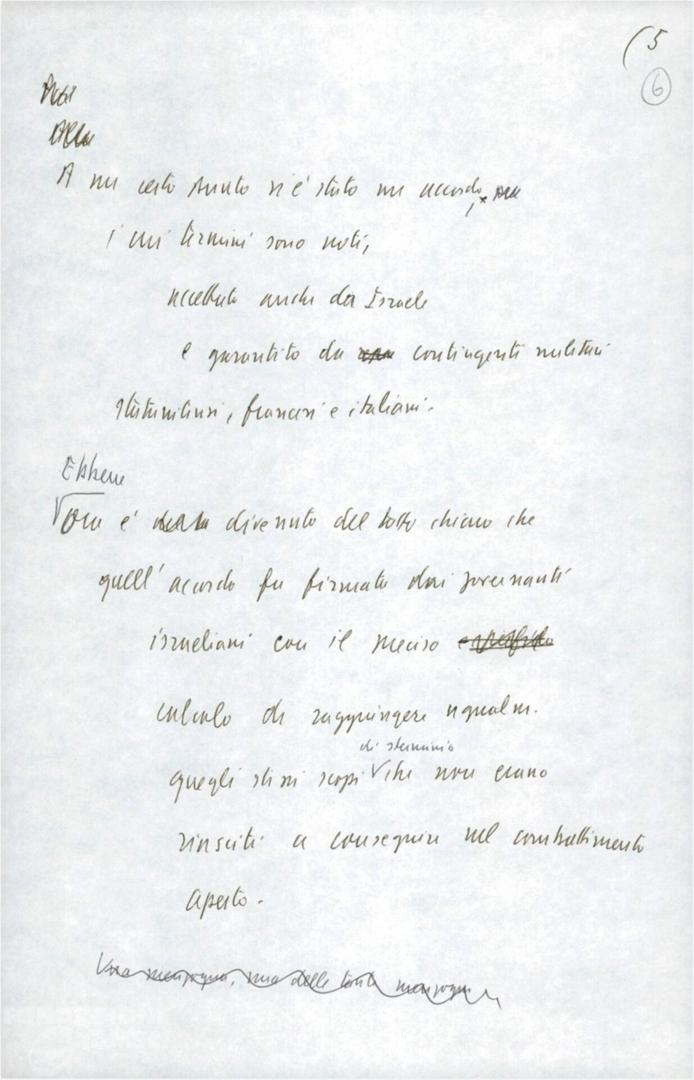 (5
6
A un certo punto vi è stato un accordo,
i cui termini sono noti,
accettato anche da Israele
e garantito da contingenti militari
statunitensi, francesi e italiani.
Ebbene
Ora è divenuto del tutto chiaro che
quell'accordo fu firmato dai governanti
israeliani con il preciso
calcolo di raggiungere ugualm.
di sterminio
quegli stessi scopi che non erano
riusciti a conseguire nel combattimento
aperto.
Una menzogna, una delle tante menzogne